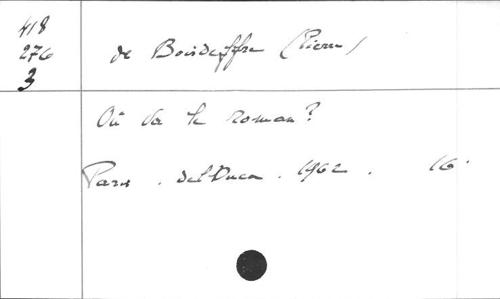 418
276
3
de Boisdeffre (Pierre)
Où va le roman?
Paris . del Duca . 1962 . 16.